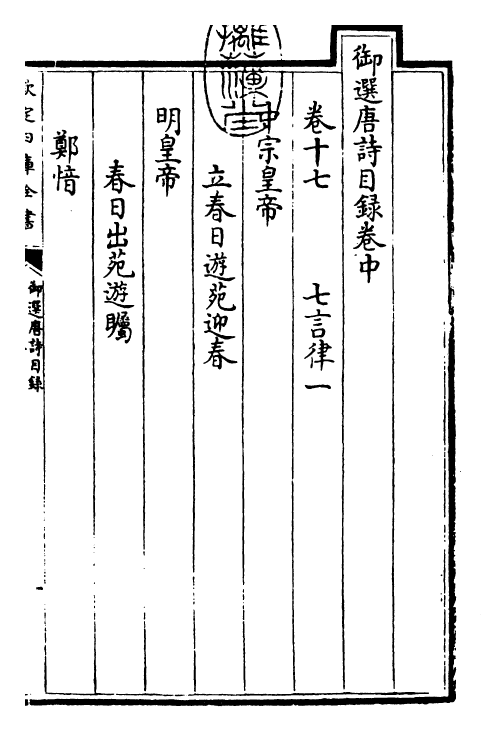 御選唐詩目録卷中
卷十七　　七言律一
中宗皇帝
立春日遊苑迎春
明皇帝
春日出苑遊矚
鄭愔
欽定四庫全書
御選唐詩目録